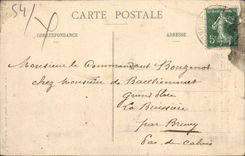 54/
CARTE POSTALE
CORRESPONDANCE
ADRESSE
Monsieur le Commandant Bougenot
chez Monsieur de
Grand Place
La Buissière
par Bruay
Pas de Calais